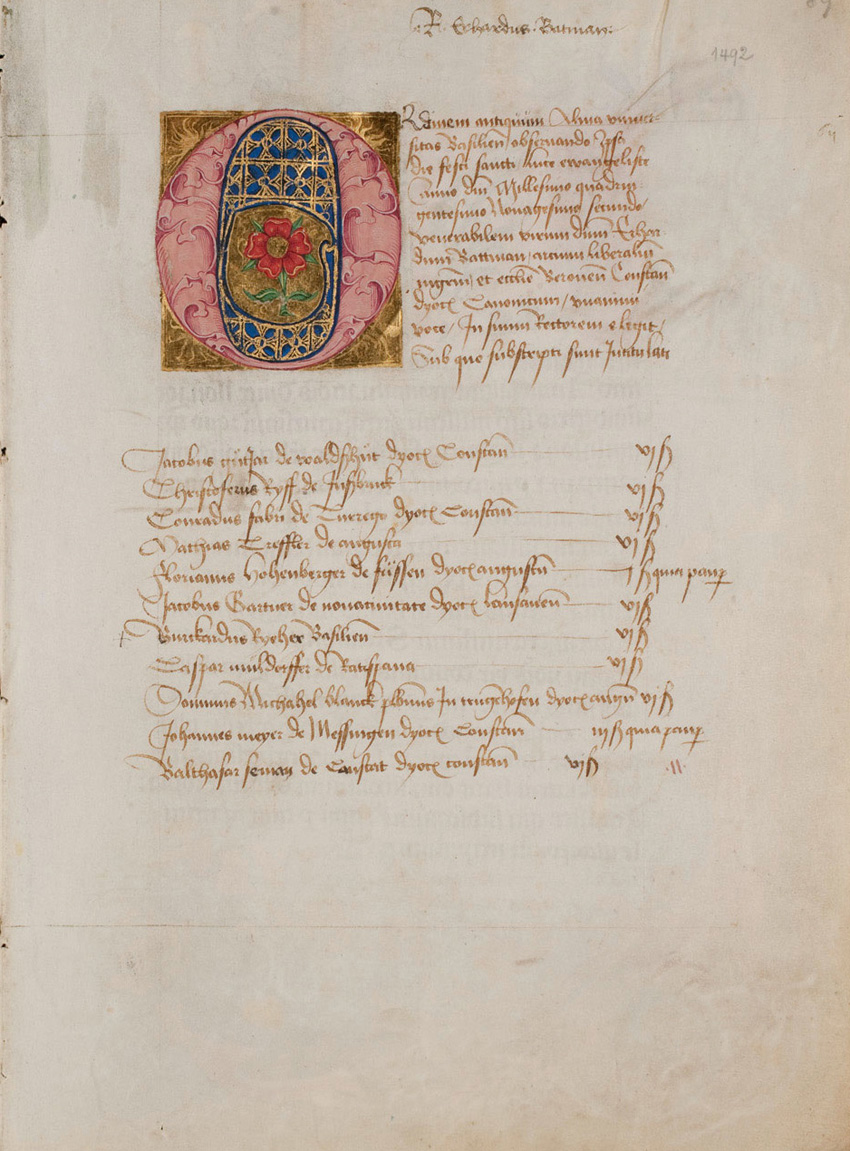 R. Erhardus Batman
1492
Ordinem antiquum Alma univer
sitas Basilien obseruando Ipso
die festi sancti luce ewangeliste
Anno dni Millesimo quadrin
gentesimo Nonagesimo secundo
venerabilem virum dnm Erhar
dum Battman, arcium liberaliu
mgrm, et ecclie Beronen Constan
dyoc Canonicum, vnanimi
voce, In suum Rectorem elegit,
Sub quo subscripti sunt Intitulati
Jacobus de waldshut dyoc Constan vi ß
Christoferus Ryff de Insbruck vi ß
Conradus fabri de Turrego dyoc Constan vi ß
Mathias Treffler de augusta vi ß
Florianus Hohenberger de füssen dyoc augusten i ß quia paup
Jacobus Gartner de nouaciuitate dyoc lausanen vi ß
Burkardus Basilien vi ß
Caspar muldorffer de Ratispana vi ß
Dominus Michahel blanck plbnus In trugehofen dyoc augun vi ß
Johannes meyer de Messingen dyoc Constan iij ß quia paup
Balthasar de Canstat dyoc constan vi ß
·11·